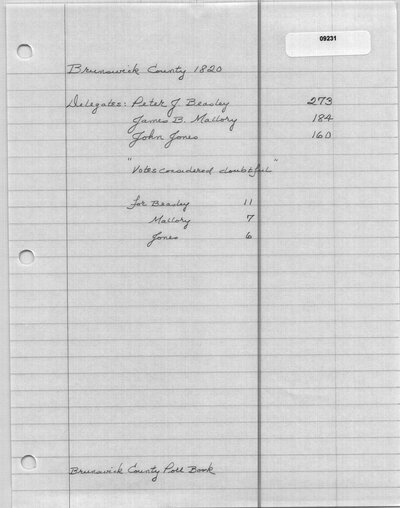 09231
Brunswick County 1820
Delegates: Peter J. Beasley 273
James B. Mallory 184
John Jones 160
"Votes considered doubtful"
for Beasley 11
Mallory 7
Jones 6
Brunswick County Poll Book